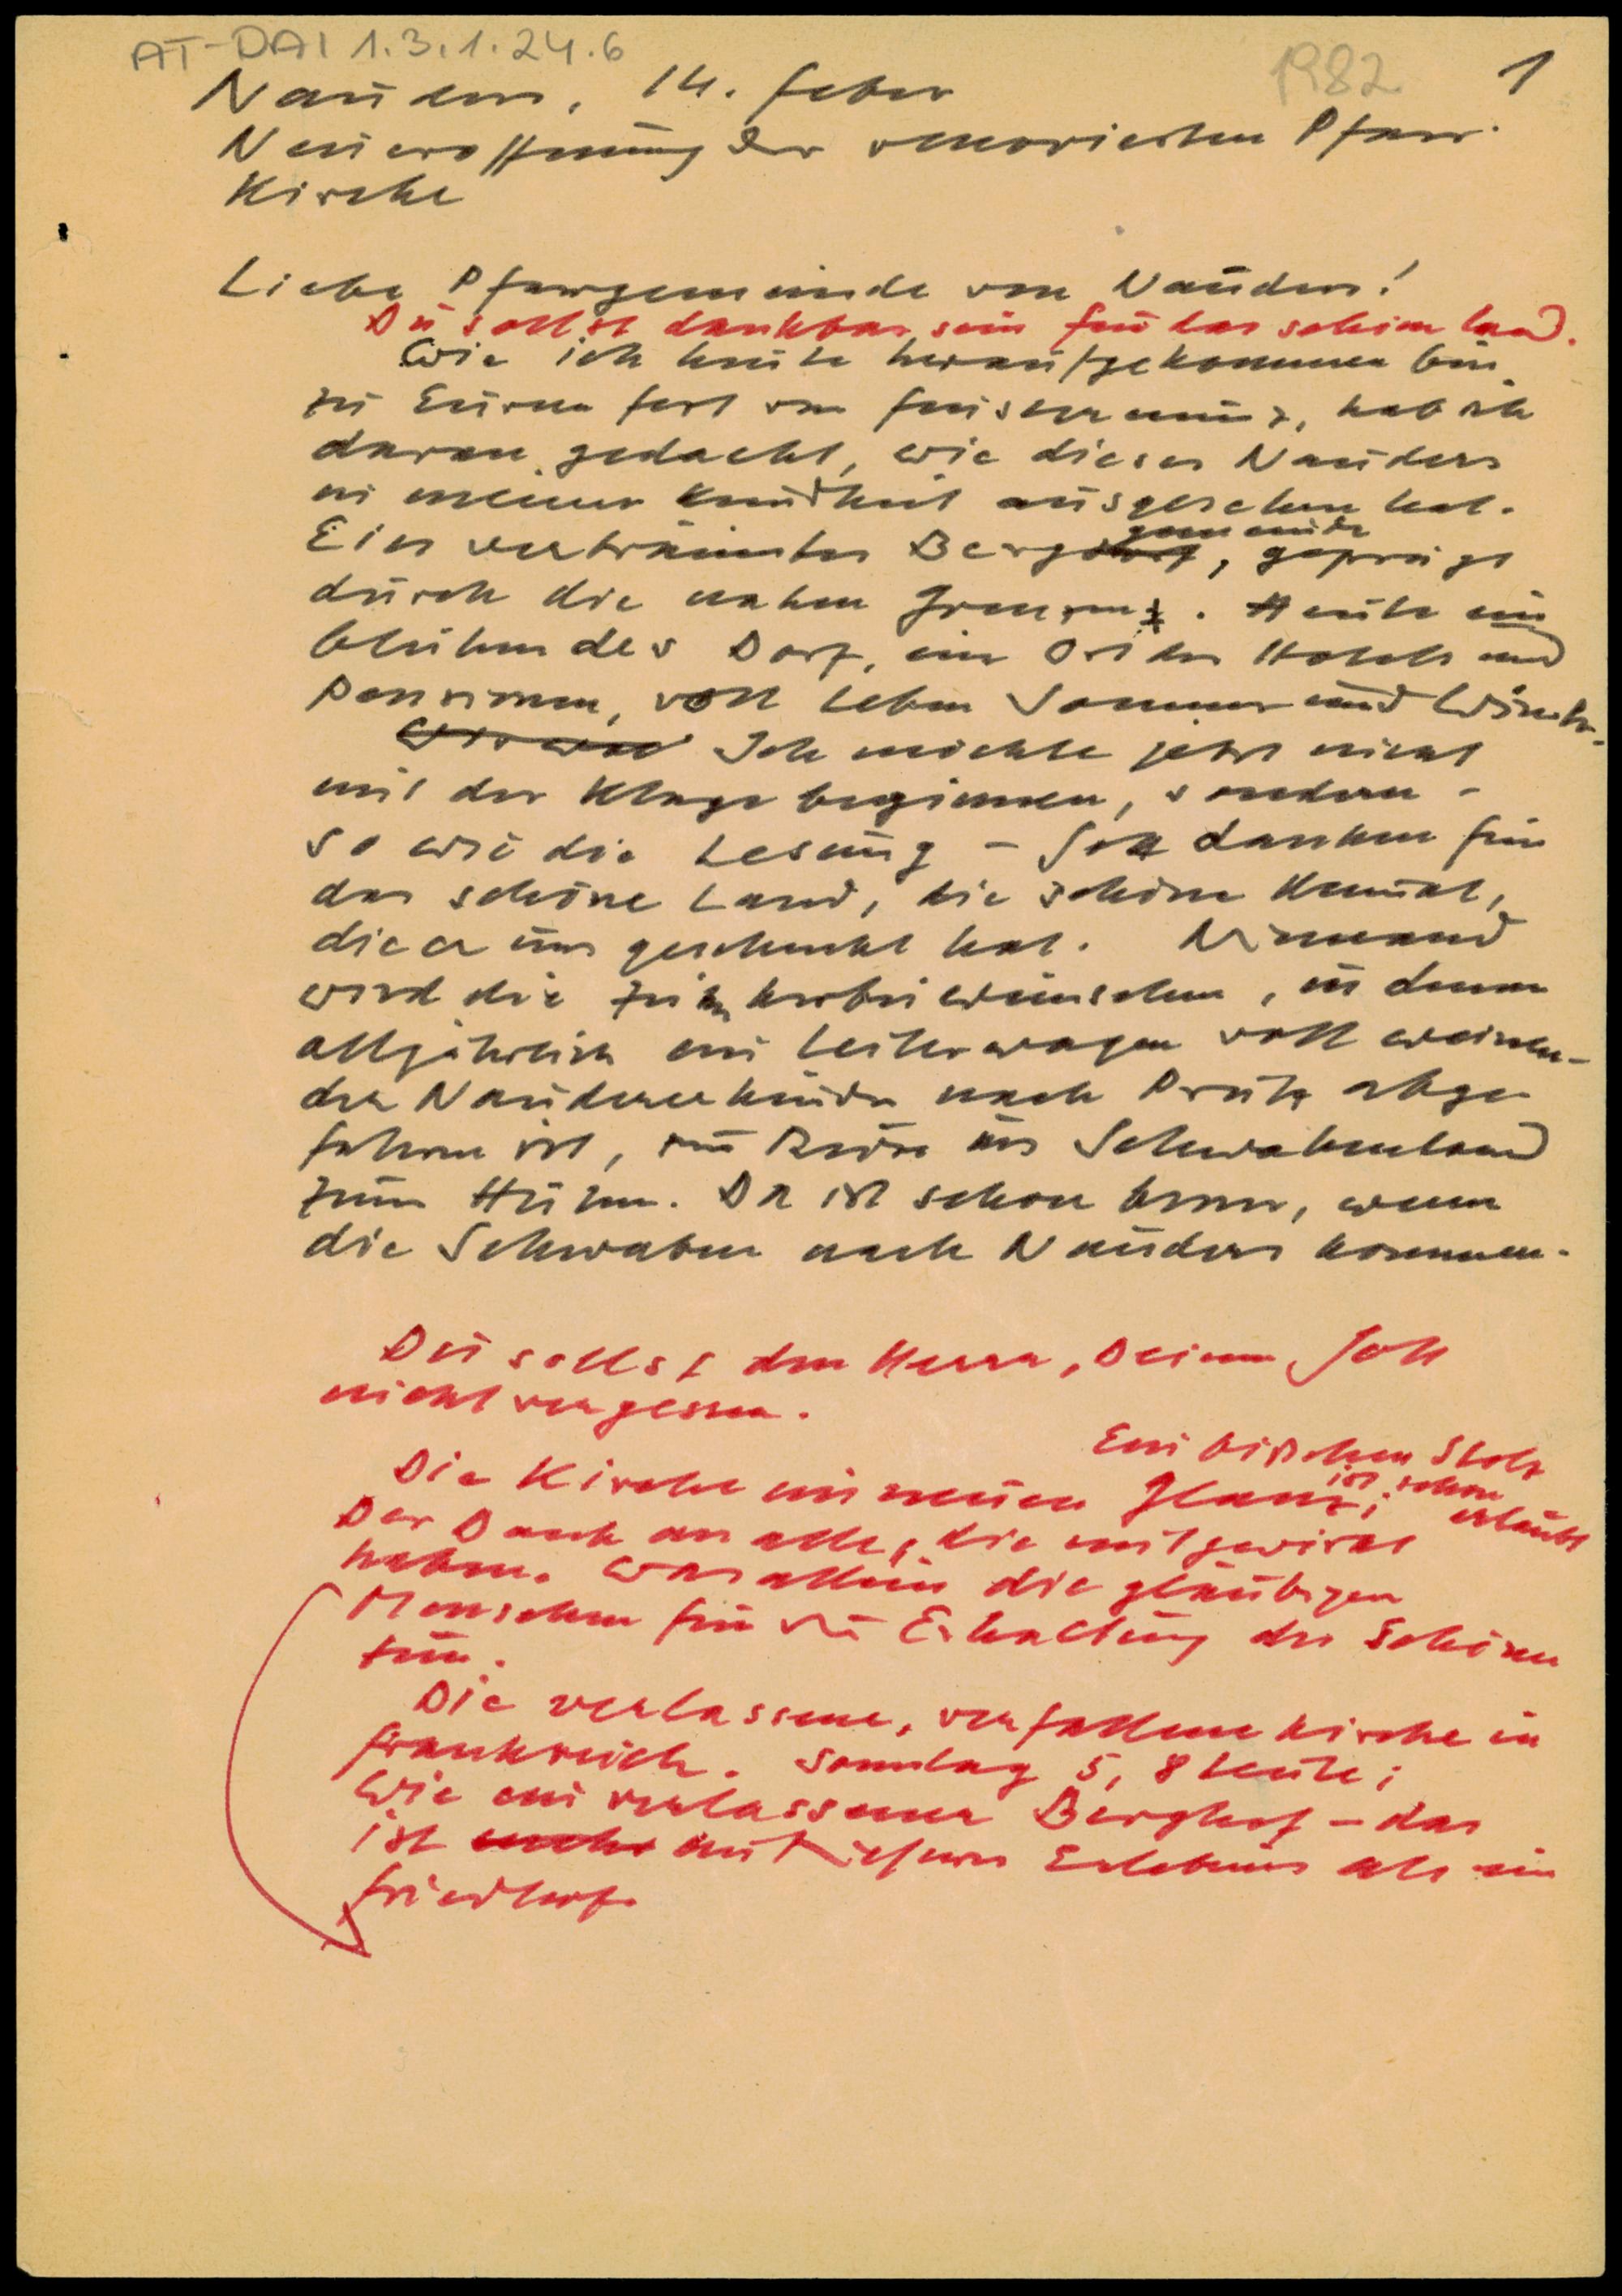 AT-DAI 1.3.1.24.6
1982 1
Nauders, 14. Feber
Neueröffnung der renovierten Pfarr-
Kirche
Liebe Pfarrgemeinde von Nauders!
Du sollst dankbar sein für das schöne Land.
Wie ich heute heraufgekommen bin
zu Eurem Fest von Finstermünz, hab ich
daran gedacht, wie dieses Nauders
in meiner Kindheit ausgesehen hat.
gemeinde
Eine verträumte Bergdorf, geprägt
durch die nahen Grenzen. Heute ein
blühendes Dorf, ein Ort der Hotels und
Pensionen, voll Leben Sommer und Winter.
Ich möchte jetzt nicht
mit der Klage beginnen, sondern -
so wie die Lesung - Gott danken für
das schöne Land, die schöne Heimat,
die er uns geschenkt hat. Niemand
wird die Zeiten herbeiwünschen, in denen
alljährlich ein Leiterwagen voll weinen-
der Naudererkinder nach Prutz abge-
fahren ist, zur Reise ins Schwabenland
zum Hüten. Da ist schon besser, wenn
die Schwaben nach Nauders kommen.
Du sollst den Herrn, Deinen Gott
nicht vergessen.
Ein bißchen Stolz
ist schon
erlaubt
Die Kirche in neuem Glanz;
Der Dank an alle, die mitgewirkt
haben. Was allein die gläubigen
Menschen für die Erhaltung des Schönen
tun.
Die verlassene, verfallene Kirche in
Frankreich. Sonntag 5, 8 Leute;
Wie ein verlassener Berghof - das
ist mehr ein tieferes Erlebnis als ein
Friedhof.